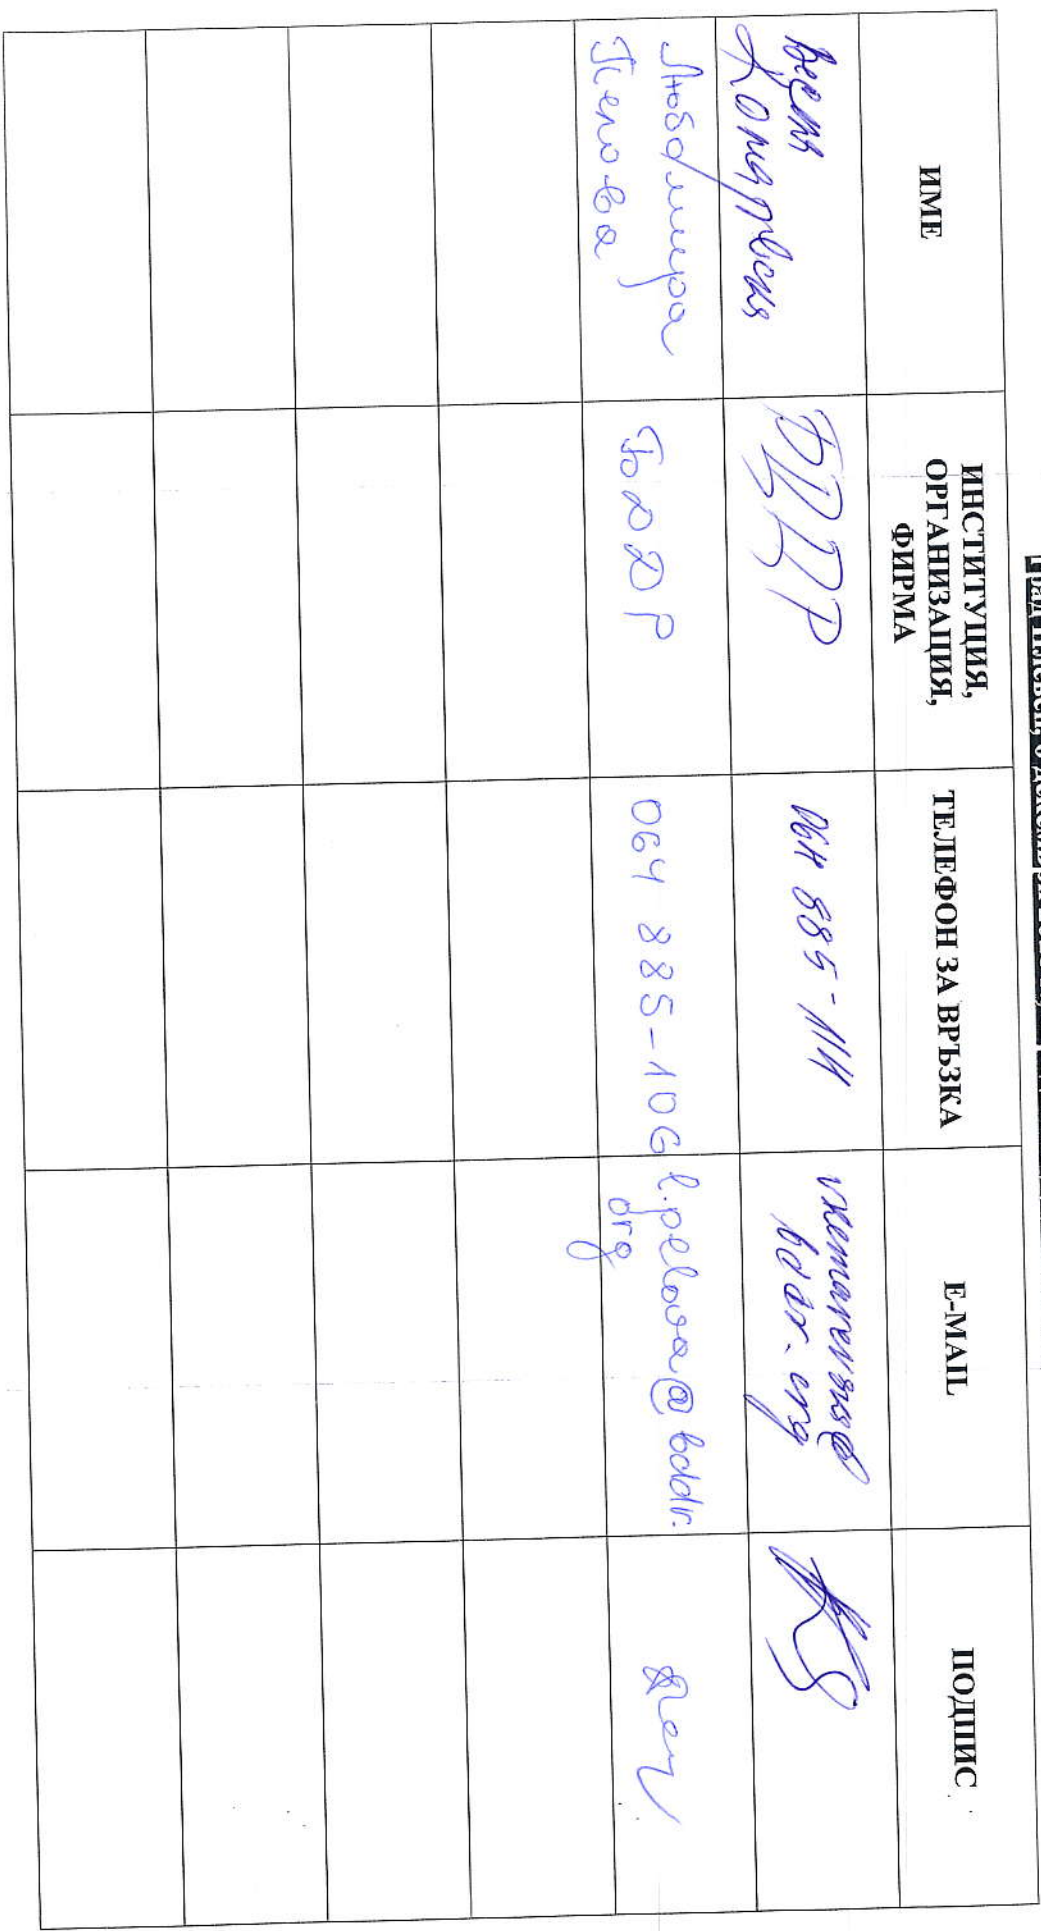 ИМЕ
ИНСТИТУЦИЯ,
ОРГАНИЗАЦИЯ,
ФИРМА
ТЕЛЕФОН ЗА ВРЪЗКА
E-MAIL
ПОДПИС
БДДР
064 885-114
bddr.org
Любомира
Пелова
БДДР
064 885-106
l.pelova@bddr.
org